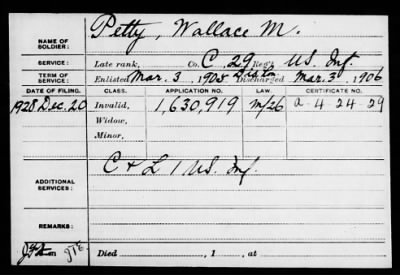 NAME OF SOLDIER: Petty, Wallace M.
SERVICE: Late rank, Co. C, 29 Reg't U.S. Inf.
TERM OF SERVICE: Enlisted Mar. 3, 1905 Discharged Mar. 3, 1906
DATE OF FILING. CLASS. APPLICATION NO. LAW. CERTIFICATE NO.
1928 Dec. 20 Invalid, 1,630,919 m/26 a-4-24-29
Widow,
Minor,
ADDITIONAL SERVICES: C & L 1 U.S. Inf.
REMARKS:
Died , 1 , at